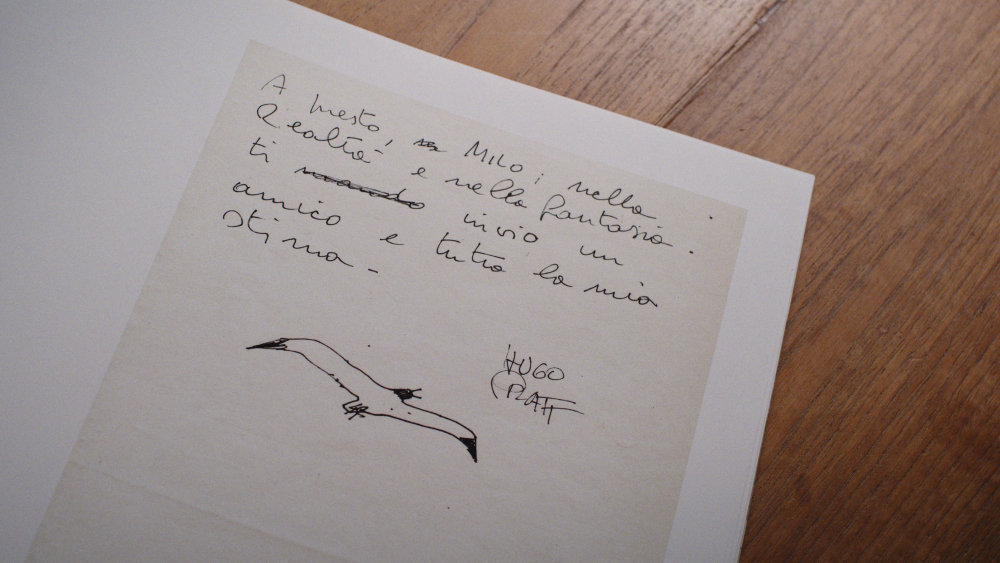 A Mesto, MILO; nella
Realtà e nella fantasia.
ti mando invio un
amico e tutta la mia
stima -
HUGO
PRATT